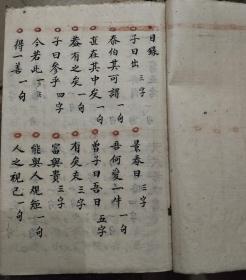 目錄
子曰出 三字 景春曰 三字
泰伯其可謂 一句 吾何愛一牛 一句
直在其中矣 一句 曾子曰吾日 五字
蓋有之矣 一句 有矣夫 三字
子曰參乎 四字 富與貴 三字
今若此 一句 能與人規矩 一句
得一善 一句 人之視己 一句